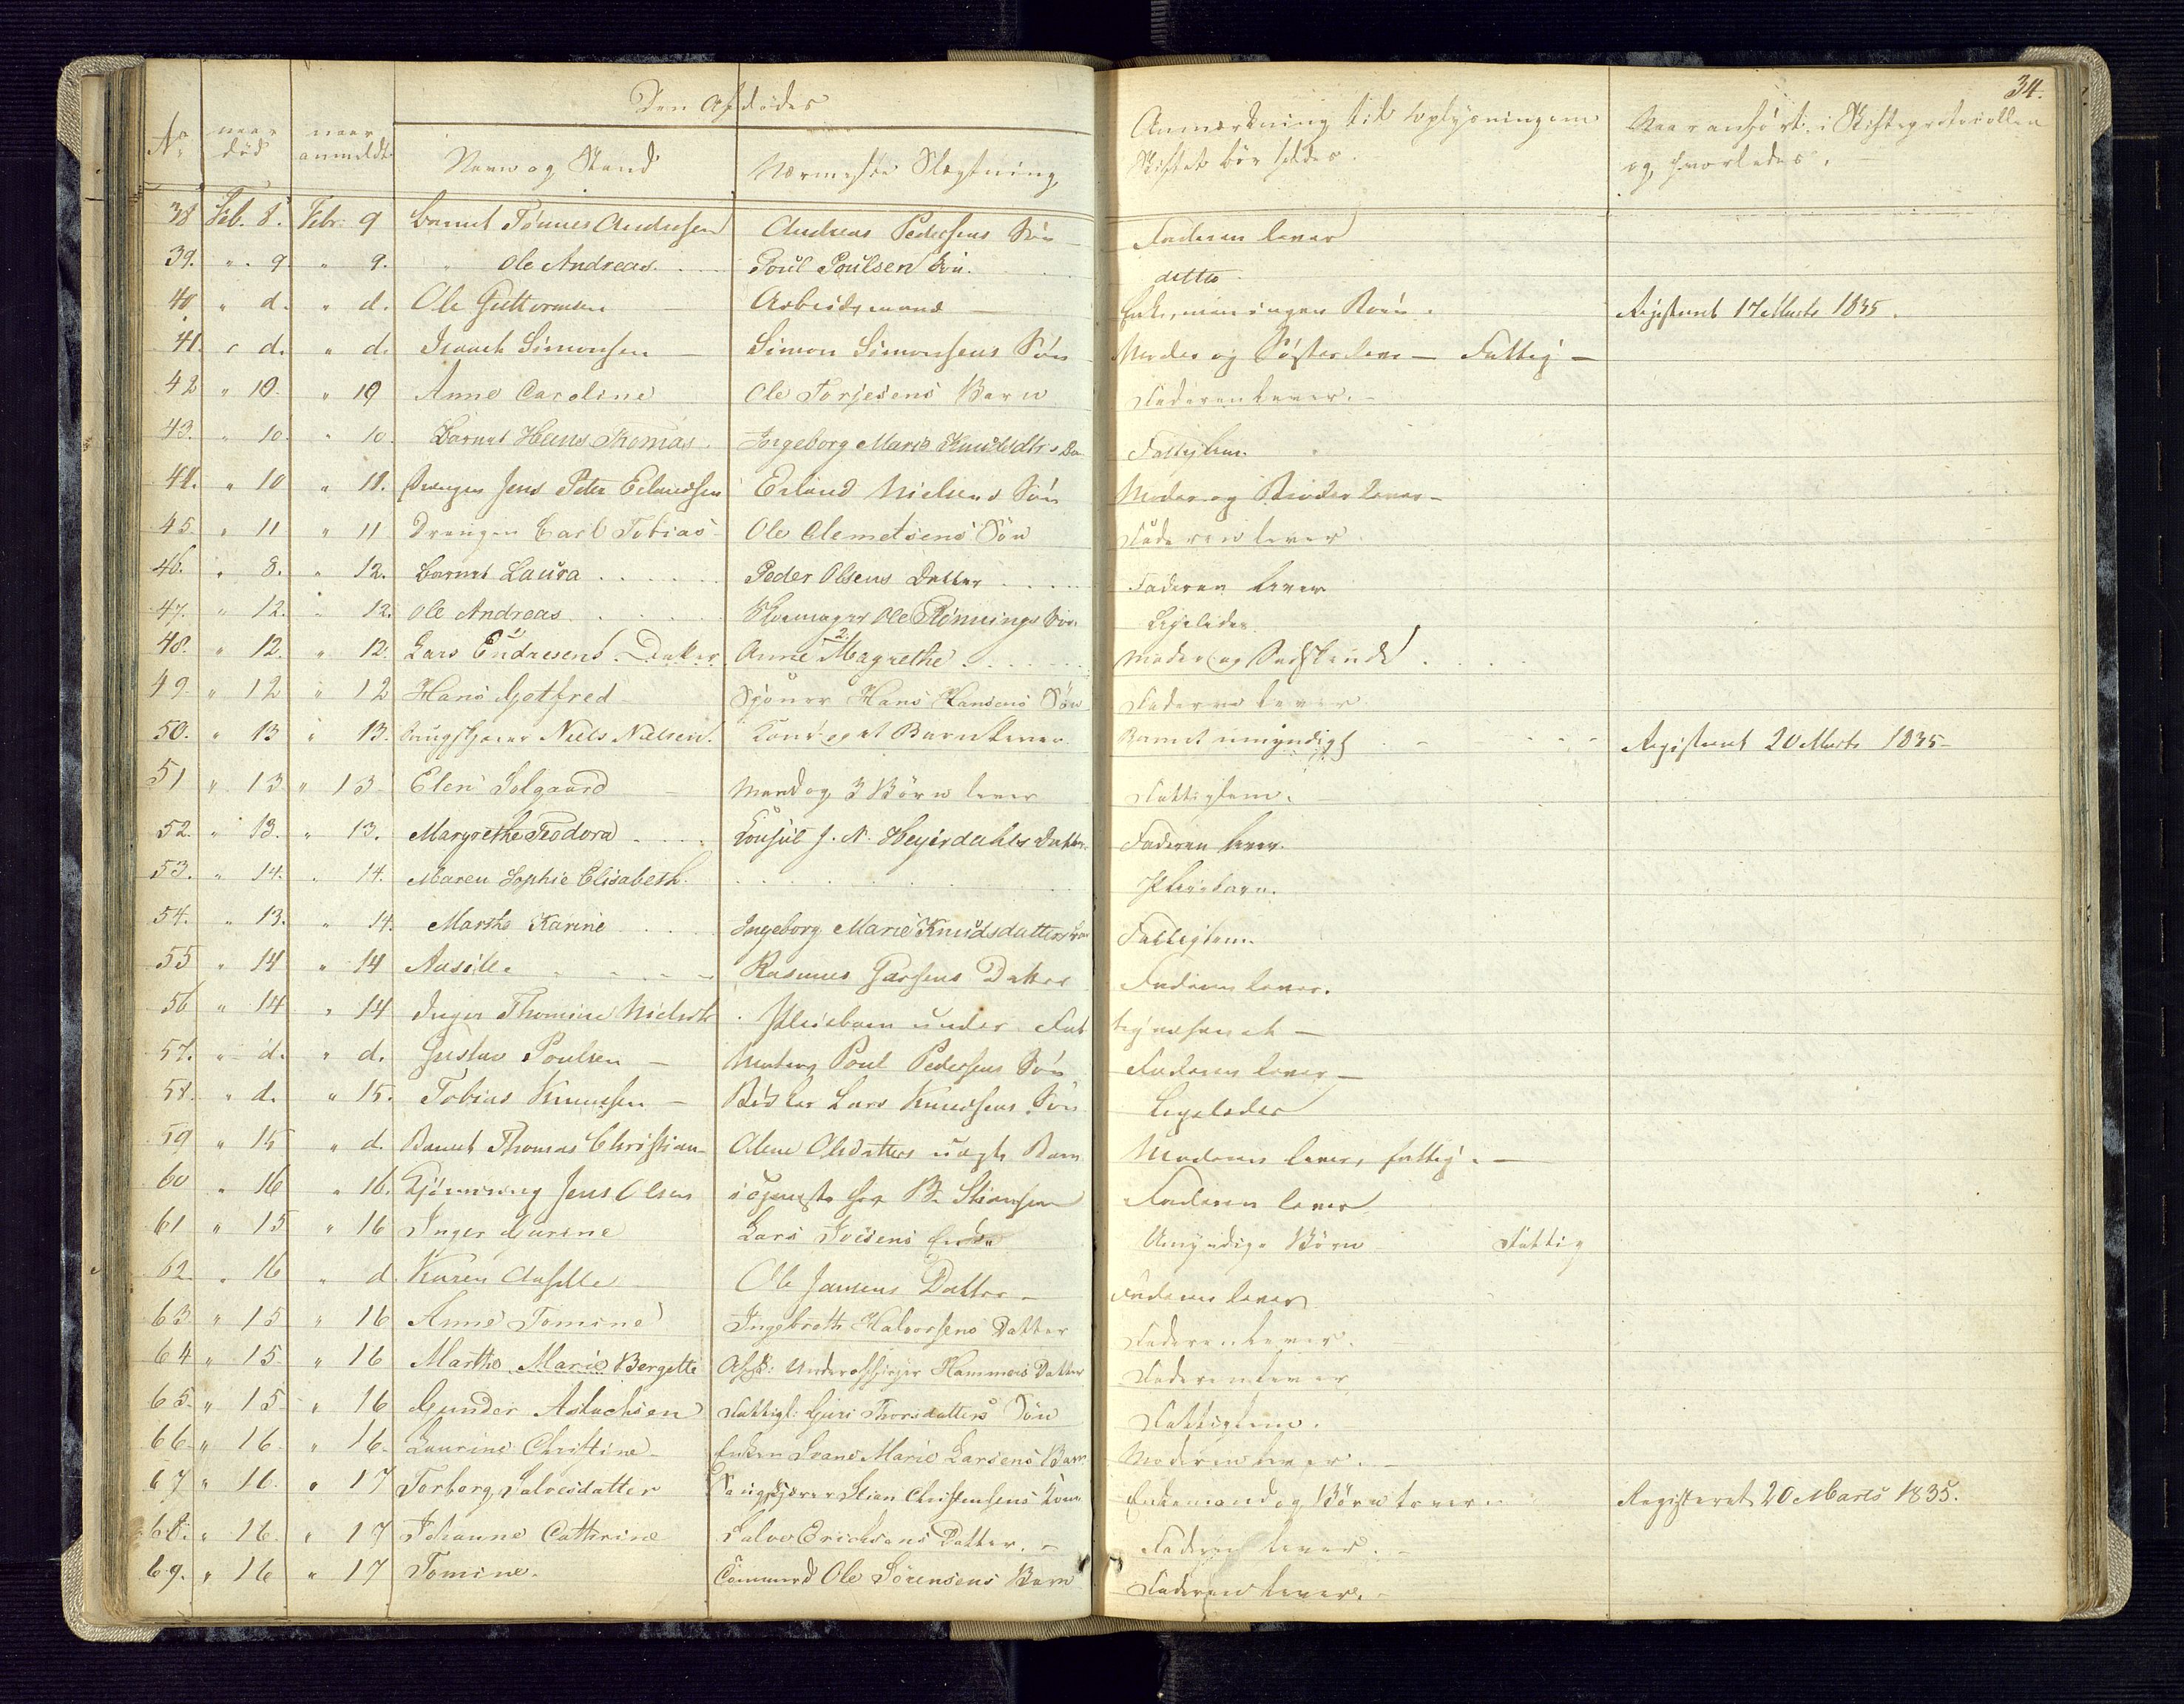 34.
Den Afdødes
No naar død naar anmeldt Navn og Stand Nærmeste Slægtning Anmærkning til Oplysning om Skiftet bør holdes. Naar anført i Skifteprotocollen og hvorledes.
38 Feb. 8. Febr. 9 Barnet Tønnes Andersen Andreas Pedersens Søn Faderen lever
39. " 9 " 9. " Ole Andreas Poul Poulsen Søn. ditto
40 " d. " d. Ole Guttormsen Arbeidsmand Enke, men ingen Børn. Registeret 17 Marts 1835.
41. " d. " d. Isaach Simonsen Simon Simonsens Søn Moder og Søster lever Fattig
42 " 10. " 10 Anne Caroline Ole Torjesens Barn Faderen lever.
43. " 10. " 10. Barnet Hans Thomas. Ingeborg Marie Knudsdtrs Fattiglem
44. " 10 " 11. Drengen Jens Peter Erlandsen Erland Nielsens Søn Moder og Broder lever
45. " 11 " 11. Drengen Carl Tobias Ole Clemetsens Søn Faderen lever
46. " 8. " 12. Barnet Laura Peder Olsens Datter Faderen lever
47. " 12. " 12. Ole Andreas Skomager Ole Rønnings Søn Ligeledes
48. " 12. " 12. Lars Endresens Datter Anne Magrethe Moder og Sødskende
49. " 12 " 12 Hans Gotfred Hans Hansens Søn Faderen lever
50. " 13 " 13. Niels Nielsen. Kone og et Barn lever Barnet umyndigt Registeret 20 Marts 1835
51 " 13 " 13 Elen Solgaard Mand og 3 Børn lever Fattiglem.
52. " 13. " 13. Margrethe Teodora Consul J. N. Heyerdahls Datter. Faderen lever.
53. " 14. " 14. Maren Sophie Elisabeth. Pleiebarn.
54. " 13. " 14. Marthe Karine Ingeborg Marie Knudsdatters Fattiglem.
55 " 14 " 14 Aasille Rasmus Datter Faderen lever.
56 " 14 " 14 Inger Thomine Nielsdtr Pleiebarn under Fattigvæsenet
57. " d. " d. Gustav Poulsen Poul Pedersens Søn Faderen lever
58. " d. " 15. Tobias Knudsen Bødker Lars Knudsens Søn Ligeledes
59 " 15 " d. Barnet Thomas Christian Alene Olsdatters uægte Barn Moderen lever, fattig.
60 " 16 " 16. Jens Olsen i tjeneste hos Faderen lever
61 " 15 " 16 Inger Gurine Lars Iversens Enke Umyndige Børn Fattig
62. " 16 " d. Karen Aasille Ole Jansens Datter Faderen lever
63 " 15 " 16 Anne Tomine Ingebreth Halvorsens Datter Faderen lever.
64 " 15 " 16 Marthe Marie Bergette Afsk: Underofficer Hammers Datter Faderen lever
65. " 15 " 16 Gunder Aslachsen Fattigl: Guri Thorsdatters Søn Fattiglem.
66. " 16 " 16. Laurine Christine Enken Marie Larsens Barn Moderen lever.
67 " 16. " 17 Torborg Salvesdatter Stian Christensens Kone Enkemand og Børn lever Registeret 20 Marts 1835.
68. " 16. " 17 Johanne Cathrine Salve Erichsens Datter. Faderen lever.
69. " 16 " 17 Tomine. Tømmermd Ole Sørensens Barn Faderen lever.